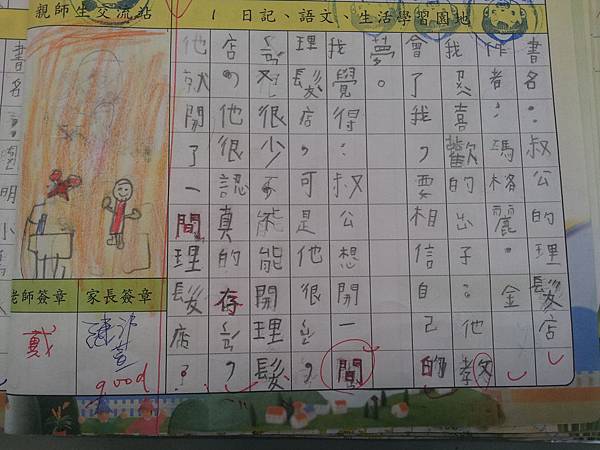 親師生交流站
1 日記、語文、生活學習園地
書名：叔公的理髮店
作者：瑪格麗．金
我 喜歡的 子：他教
會了我，要相信自己的
夢。
我覺得：叔公想開一間
理髮店，可是他很 ，
很少 能開理髮
店，他很認真的存 ，
他就開了一間理髮店。
老師簽章 家長簽章
戴
good